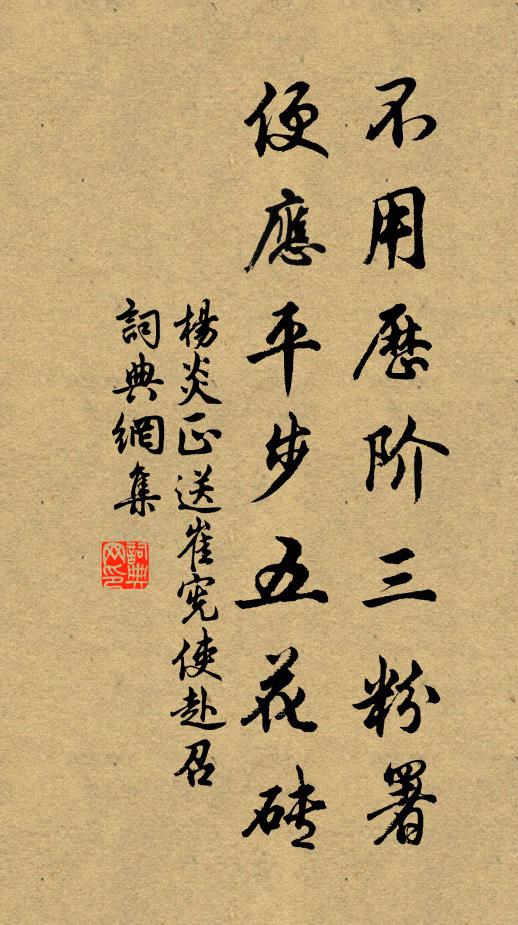 不用歷阶三粉署
便應平步五花砖
楊炎正送崔宪使赴召
詞典網集
詞典网印